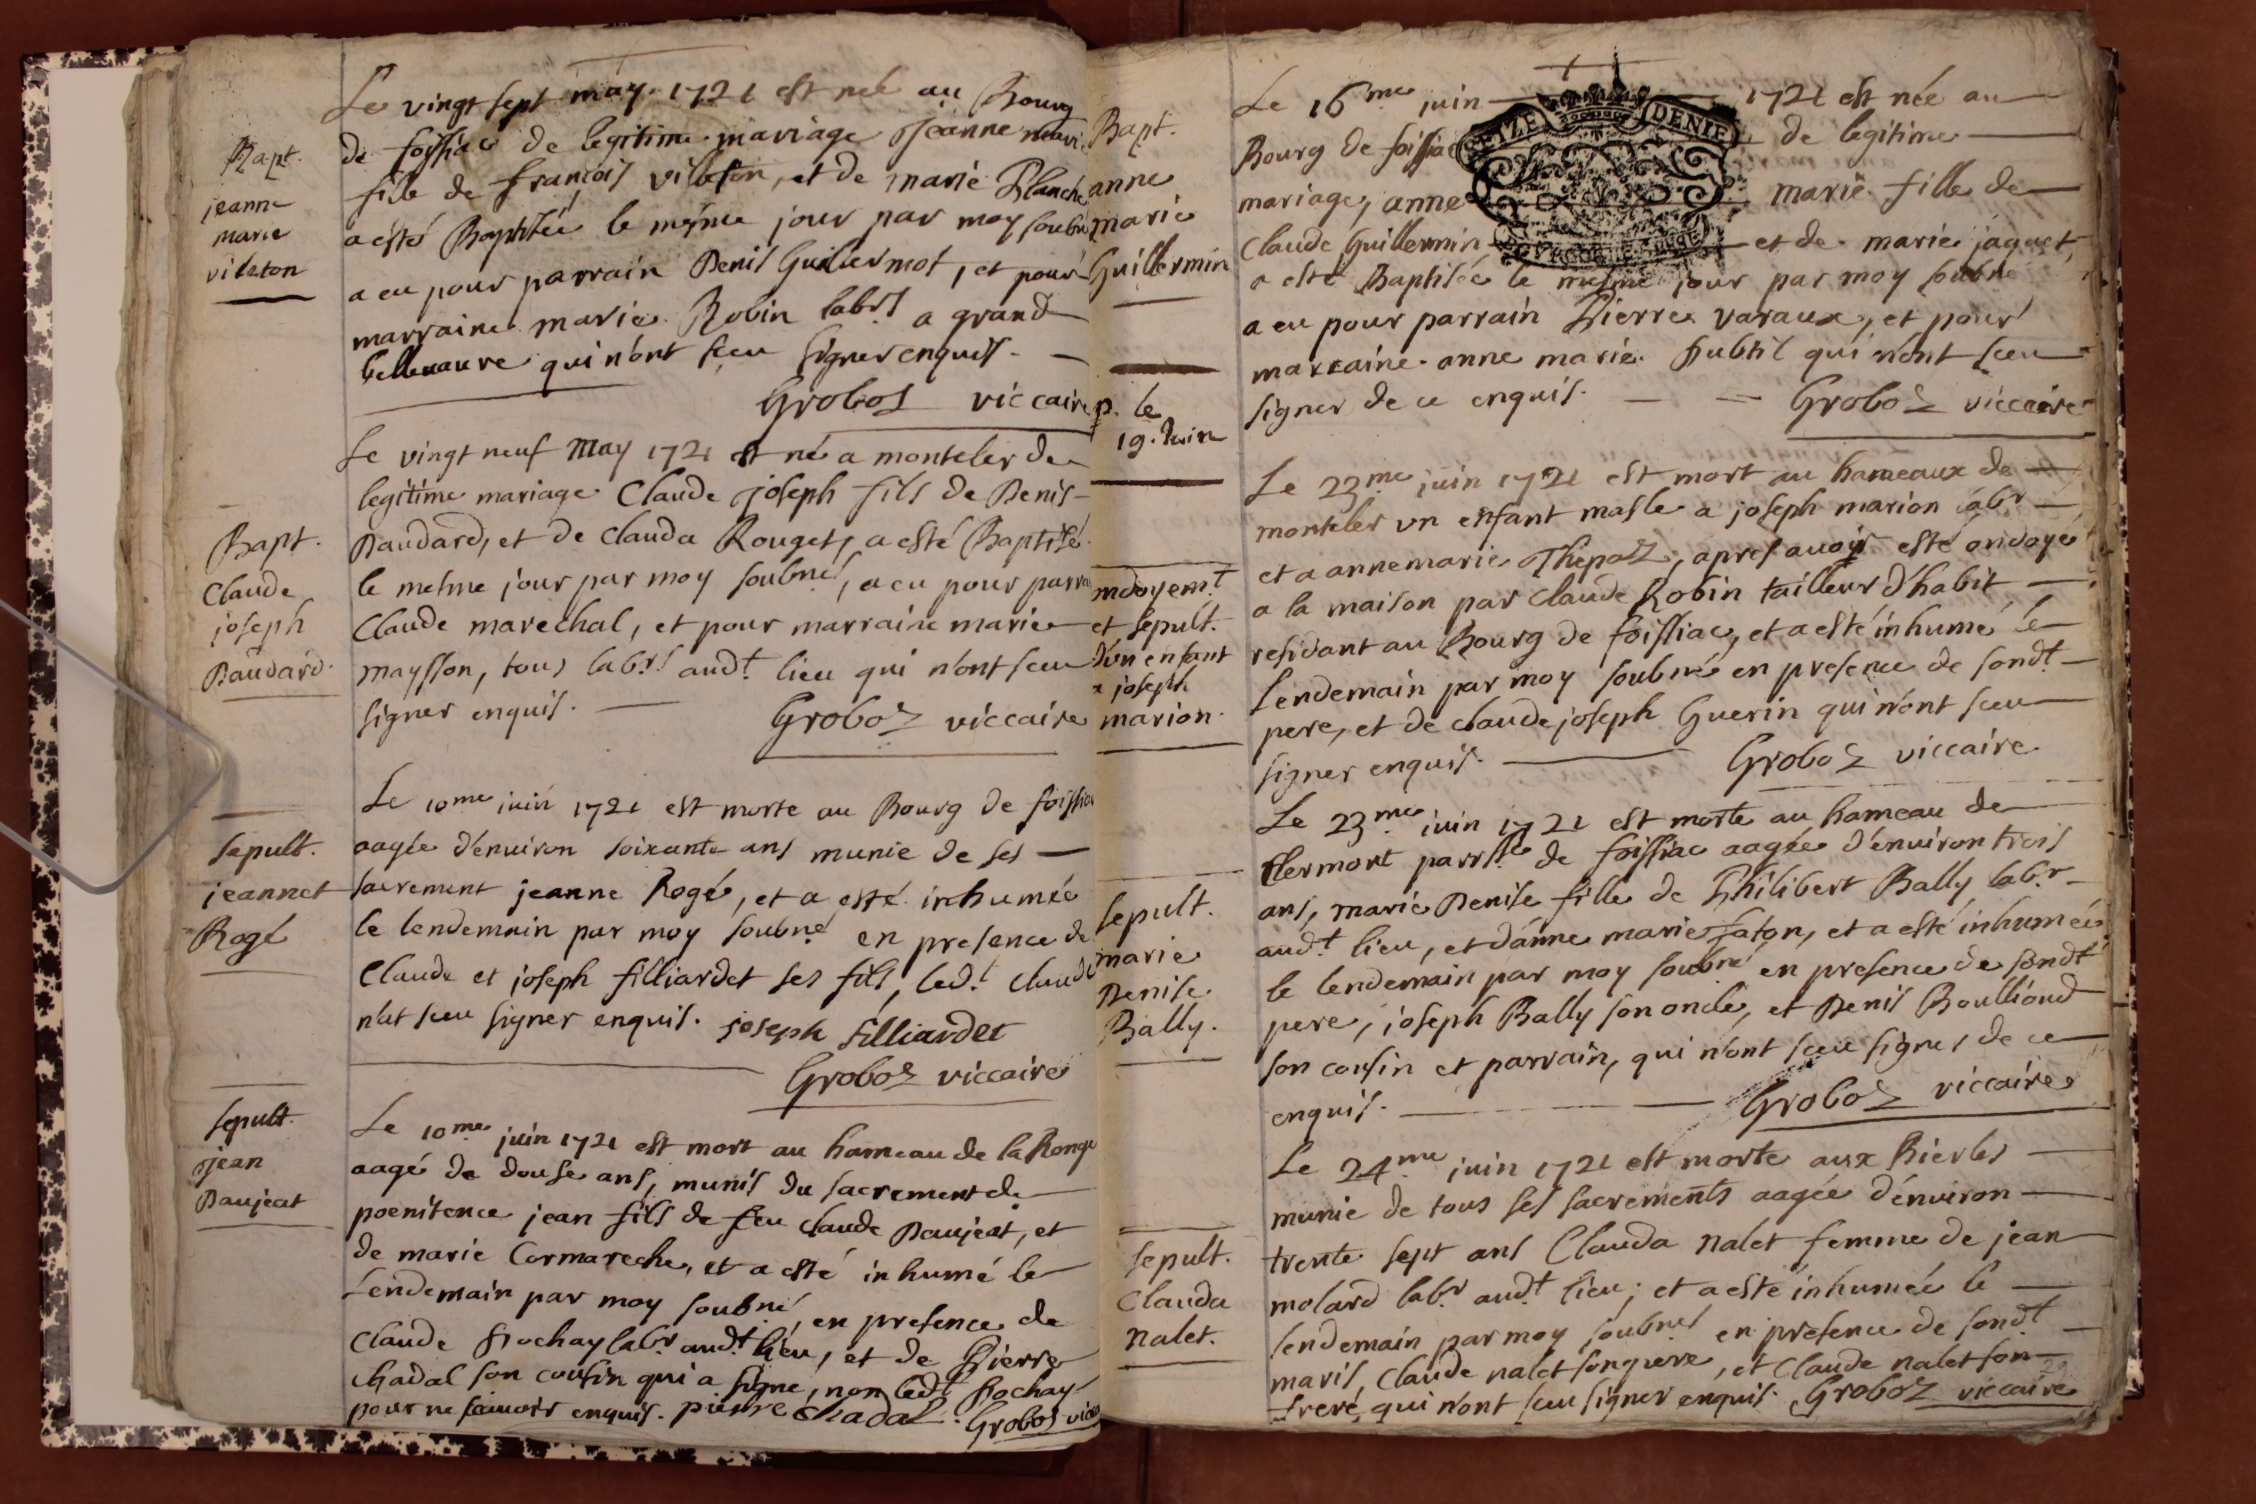 Le vingt sept may 1721 est neé au Bourg
de foissiac de legitime mariage Jeanne marie
fille de françois vileton, et de marie Blanche
a esté Baptisée le mesme jour par moy soubné
a eu pour parrain Denis Guillermot, et pour
marraine marie Robin labrs a grand
bellevavre qui n'ont sceu signer enquis.
Grobos viccaire
Bapt.
jeanne
marie
vileton
Le vingt neuf may 1721 est né a monteler de
legitime mariage Claude joseph fils de Denis
Daudard, et de Clauda Rouget, a esté Baptisé
le mesme jour par moy soubné, a eu pour parra
Claude marechal, et pour marraine marie
maysson, tous labrs audt lieu qui n'ont sceu
signer enquis. Groboz viccaire
Bapt.
Claude
joseph
Daudard.
Le 10me juin 1721 est morte au Bourg de foissia
aagée d'enuiron soixante ans munie de ses
sacrement jeanne Rogé, et a esté inhumée
le lendemain par moy soubné en presence de
Claude et joseph filliardet ses fils, ledt Claude
n'at sceu signer enquis. joseph filliardet
Groboz viccaire
sepult.
jeannet
Rogé
Le 10me juin 1721 est mort au hameau de la Ronge
aagé de douse ans, munis du sacrement de
poenitence jean fils de feu Claude Daujeat, et
de marie Cormareche, et a esté inhumé le
Lendemain par moy soubné, en presence de
Claude frochay labr audt lieu, et de Pierre
chadal son cousin qui a signé, non ledt frochay
pour ne scauoir enquis. pierre chadal. Grobos vicca
sepult.
jean
Daujeat
Le 16me juin 1721 est née au
Bourg de foissiac de legitime
mariage, anne marie fille de
Claude Guillermin et de marie jaquet,
a esté Baptisée le mesme jour par moy soubné
a eu pour parrain Pierre varaux, et pour
marraine anne marie subtil qui n'ont sceu
signer de ce enquis. Groboz viccaire
TREIZE DENIE
Bapt.
anne
marie
Guillermin
p. le
19. Juin
Le 23me juin 1721 est mort au hameaux de
monteler vn enfant masle a joseph marion labr
et a annemarie Thepoz, apres auoir esté ondoyé
a la maison par Claude Robin tailleur d'habit
residant au Bourg de foissiac, et a esté inhumé le
lendemain par moy soubné en presence de sondt
pere, et de claude joseph Guerin qui n'ont sceu
signer enquis. Groboz viccaire
ondoyemt
et sepult.
d'un enfant
a joseph
marion.
Le 23me juin 1721 est morte au hameau de
Clermont parrsse de foissiac aagée d'enuiron trois
ans, marie Denise fille de Philibert Bally labr
audt lieu, et d'anne marie faton, et a esté inhumée
le lendemain par moy soubné en presence de sondt
pere, joseph Bally son oncle, et Denis Boulliond
son cousin et parrain, qui n'ont sceu signer de ce
enquis. Groboz viccaire
sepult.
marie
Denise
Bally.
Le 24me juin 1721 est morte aux Bierles
munie de tous ses sacrements aagée d'enuiron
trente sept ans Clauda nalet femme de jean
molard labr audt lieu; et a esté inhumée le
lendemain par moy soubné en presence de sondt
maris, Claude nalet son pere, et Claude nalet son
frere, qui n'ont sceu signer enquis. Groboz viccaire
sepult.
Clauda
nalet.